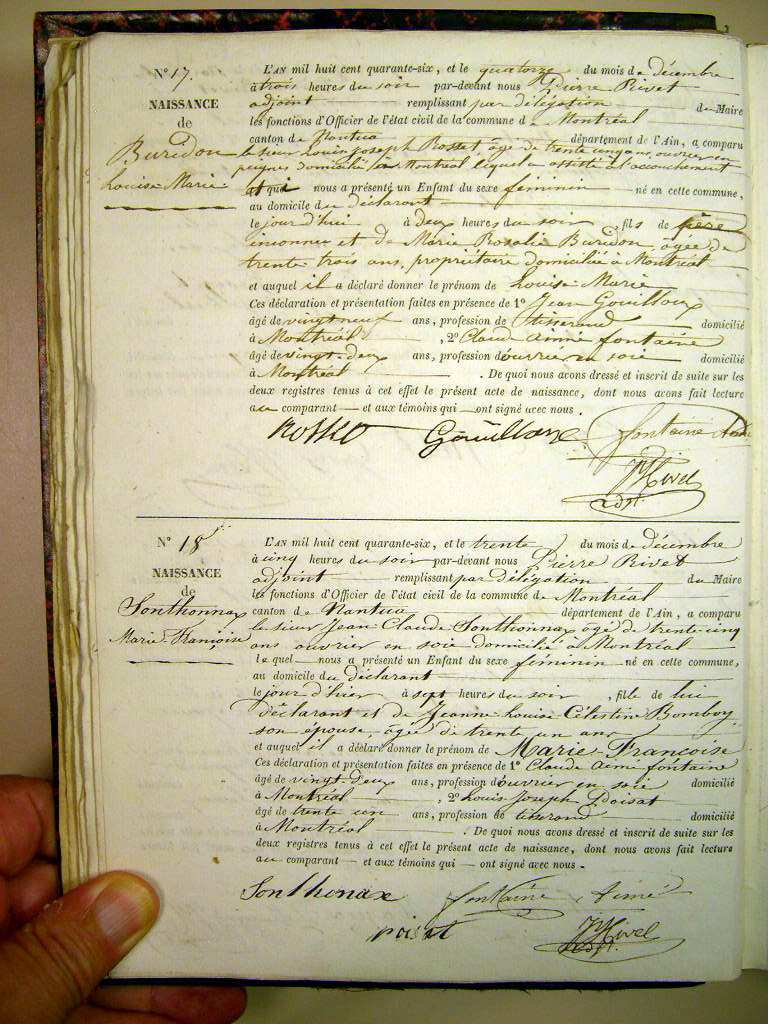 N° 17.
NAISSANCE
de
Buridon
Louise Marie
L'AN mil huit cent quarante-six, et le quatorze du mois de décembre
à trois heures du soir par-devant nous Pierre Rivet
adjoint remplissant par délégation du Maire
les fonctions d'Officier de l'état civil de la commune de Montréal
canton de Nantua département de l'Ain, a comparu
le sieur Louis Joseph Rosset âgé de trente cinq ans, ouvrier en
peignes domicilié à Montréal lequel a assisté à l'accouchement
et qui nous a présenté un Enfant du sexe féminin né en cette commune,
au domicile du déclarant
le jour d'hui à deux heures du soir, fils de père
inconnu et de Marie Rosalie Buridon, âgée de
trente trois ans, propriétaire domiciliée à Montréal
et auquel il a déclaré donner le prénom de Louise Marie
Ces déclaration et présentation faites en présence de 1° Jean Gouilloux
âgé de vingt neuf ans, profession de tisserand domicilié
à Montréal, 2° Claude Aimé fontaine
âgé de vingt-deux ans, profession d'ouvrier en soie domicilié
à Montréal. De quoi nous avons dressé et inscrit de suite sur les
deux registres tenus à cet effet le présent acte de naissance, dont nous avons fait lecture
au comparant et aux témoins qui ont signé avec nous.
Gouilloux fontaine
PRivet
adjt.
N° 18
NAISSANCE
de
Sonthonnax
Marie-Françoise
L'AN mil huit cent quarante-six, et le trente du mois de décembre
à cinq heures du soir par-devant nous Pierre Rivet
adjoint remplissant par délégation du Maire
les fonctions d'Officier de l'état civil de la commune de Montréal
canton de Nantua département de l'Ain, a comparu
le sieur Jean Claude Sonthonnax âgé de trente cinq
ans ouvrier en soie domicilié à Montréal
lequel nous a présenté un Enfant du sexe féminin né en cette commune,
au domicile du déclarant
le jour d'hier à sept heures du soir, fille de lui
déclarant et de Jeanne Louise Célestine Bomboy,
son épouse, âgée de trente un ans
et auquel il a déclaré donner le prénom de Marie-Françoise
Ces déclaration et présentation faites en présence de 1° Claude Aimé fontaine
âgé de vingt-deux ans, profession d'ouvrier en soie domicilié
à Montréal, 2° Louis Joseph Poisat
âgé de trente un ans, profession de tisserand domicilié
à Montréal. De quoi nous avons dressé et inscrit de suite sur les
deux registres tenus à cet effet le présent acte de naissance, dont nous avons fait lecture
au comparant et aux témoins qui ont signé avec nous.
Sonthonax fontaine Aimé
poisat PRivet
adjt.